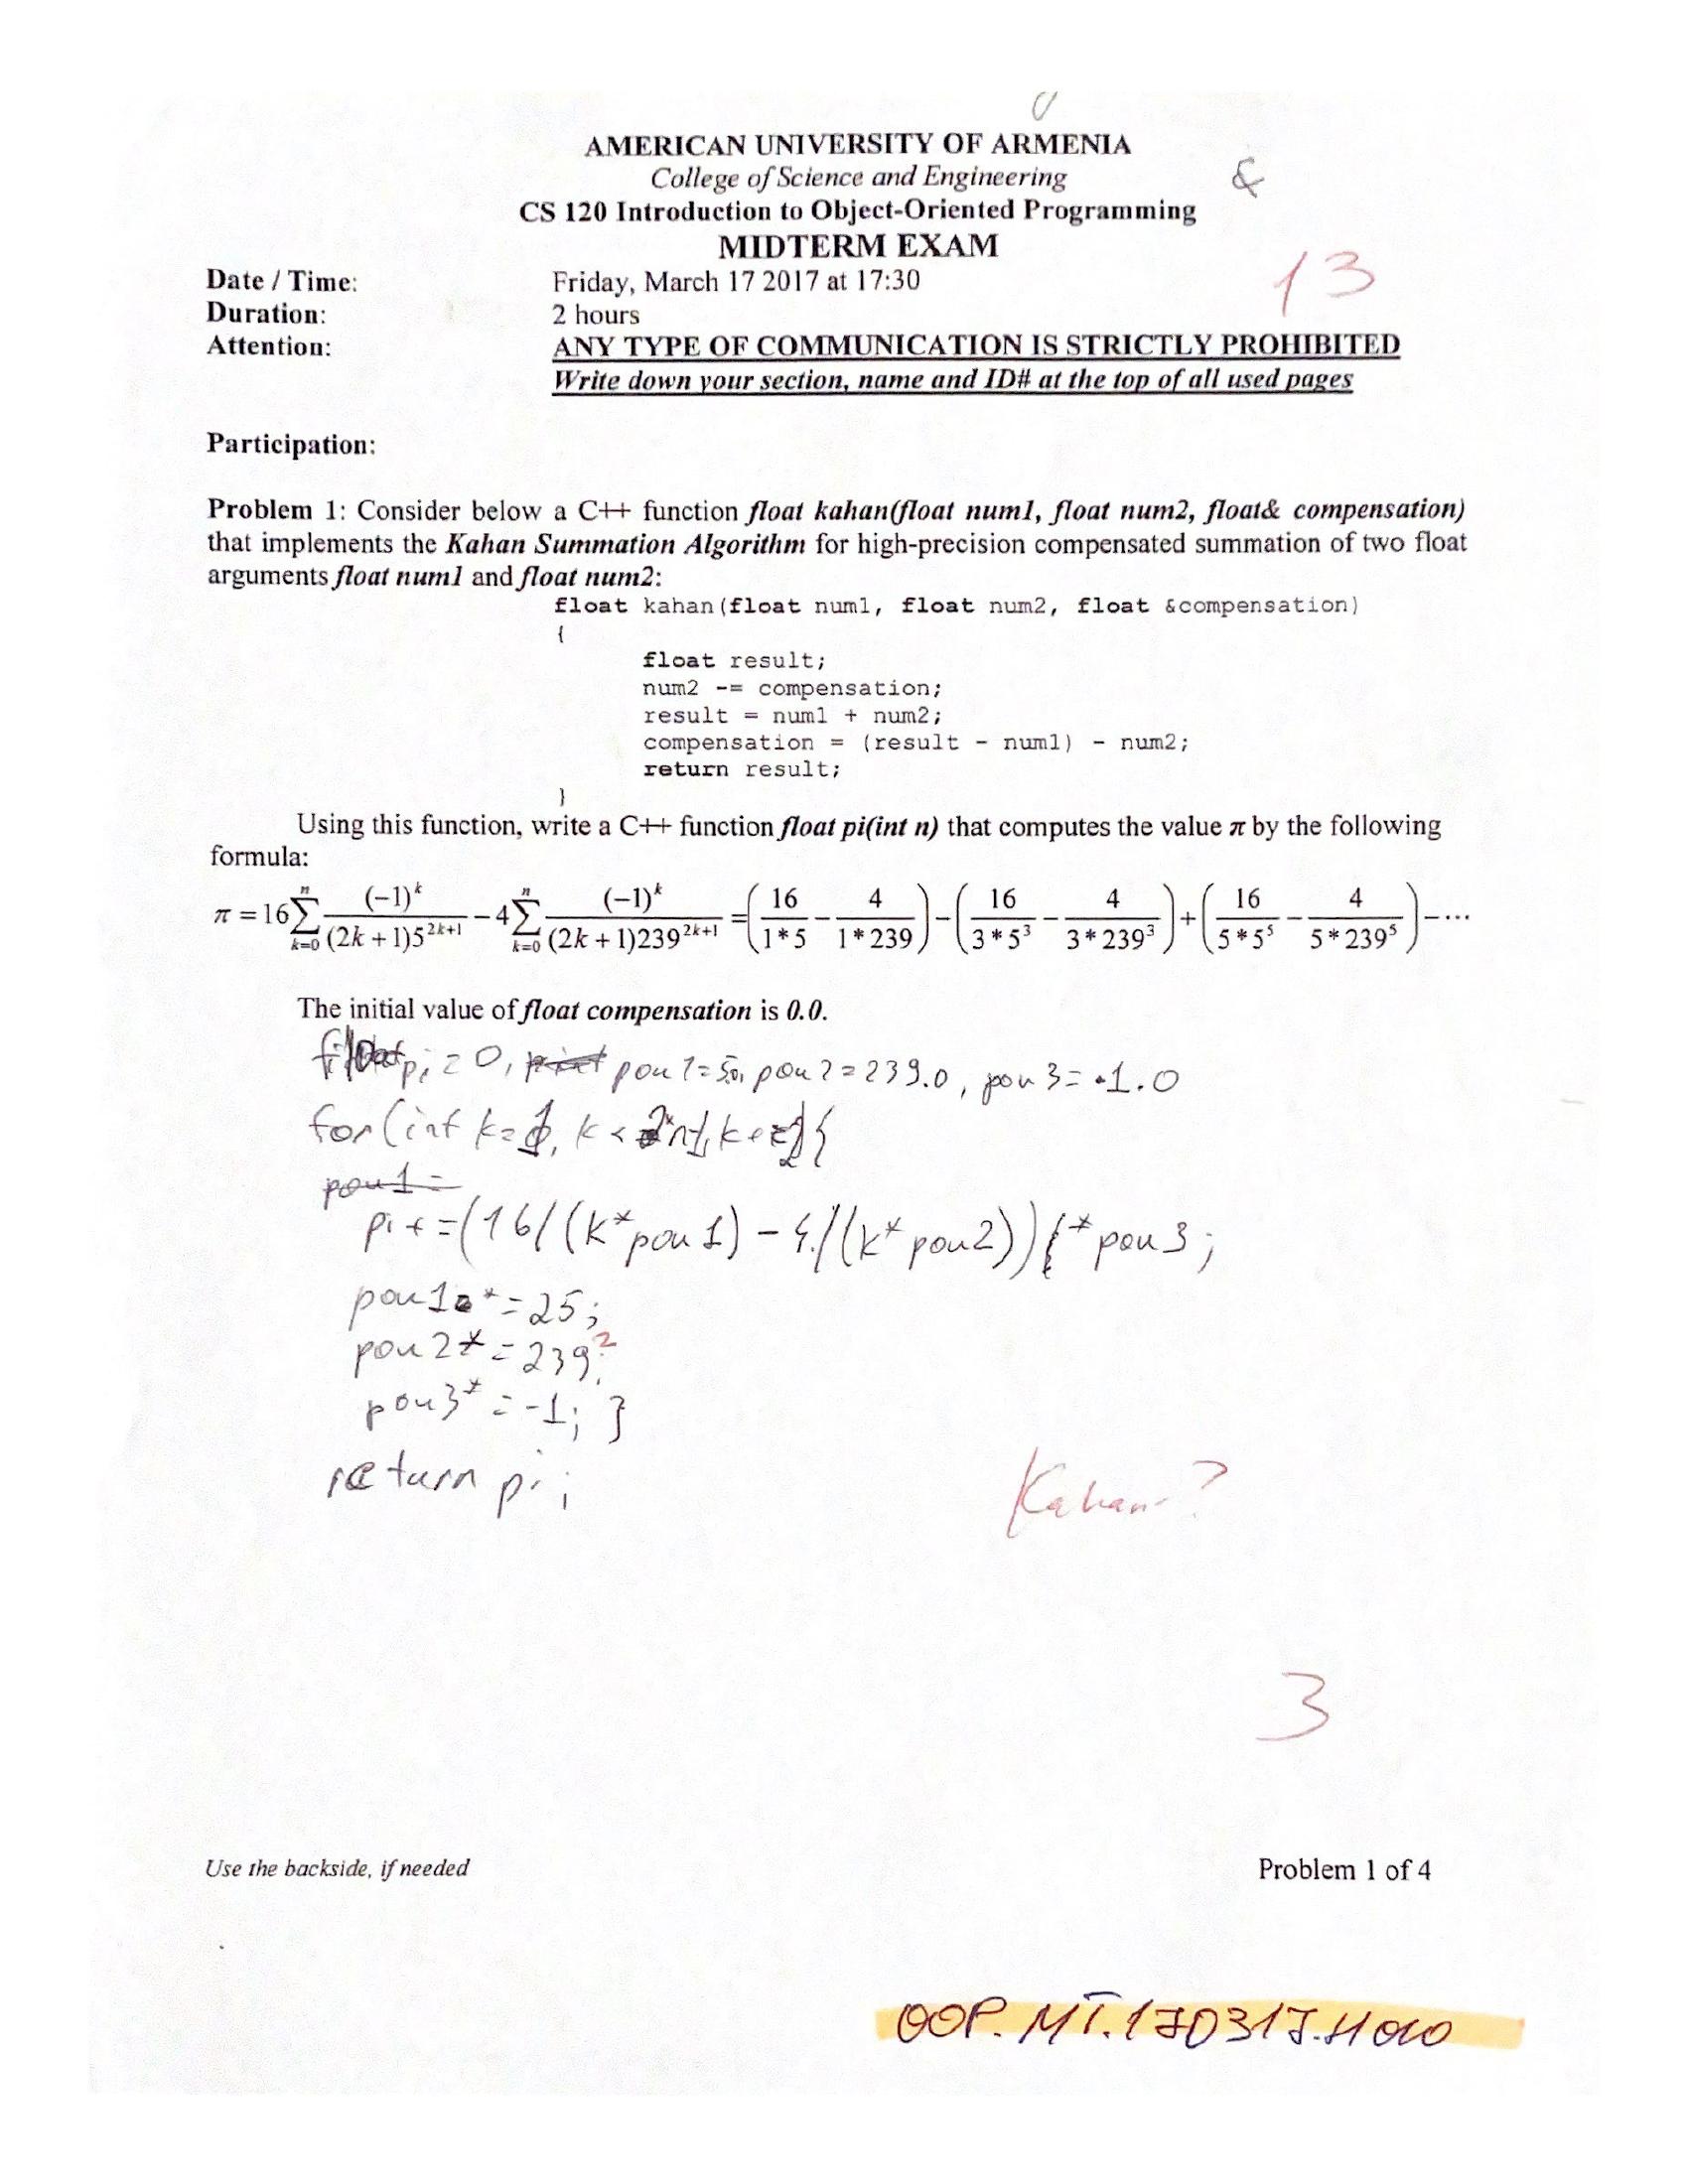 AMERICAN UNIVERSITY OF ARMENIA
College of Science and Engineering
&
CS 120 Introduction to Object-Oriented Programming
MIDTERM EXAM
13
Date / Time: Friday, March 17 2017 at 17:30
Duration: 2 hours
Attention: ANY TYPE OF COMMUNICATION IS STRICTLY PROHIBITED
Write down your section, name and ID# at the top of all used pages
Participation:
Problem 1: Consider below a C++ function float kahan(float num1, float num2, float& compensation)
that implements the Kahan Summation Algorithm for high-precision compensated summation of two float
arguments float num1 and float num2:
float kahan(float num1, float num2, float &compensation)
{
float result;
num2 -= compensation;
result = num1 + num2;
compensation = (result - num1) - num2;
return result;
}
Using this function, write a C++ function float pi(int n) that computes the value π by the following
formula:
π = 16 ∑_{k=0}^{n} (-1)^k / ((2k+1)5^{2k+1}) - 4 ∑_{k=0}^{n} (-1)^k / ((2k+1)239^{2k+1}) = (16/(1*5) - 4/(1*239)) - (16/(3*5^3) - 4/(3*239^3)) + (16/(5*5^5) - 4/(5*239^5)) - ...
The initial value of float compensation is 0.0.
float pi = 0, pow1=5.0, pow2=239.0, pow3=1.0
for(int k=1, k<2*n+1, k+=2){
pow1=
pi+=(16/(k*pow1)-4./(k*pow2))*pow3;
pow1*=25;
pow2*=239?
pow3*=-1; }
return pi;
Kahan-?
3
Use the backside, if needed
Problem 1 of 4
OOP.MT.170317.H010